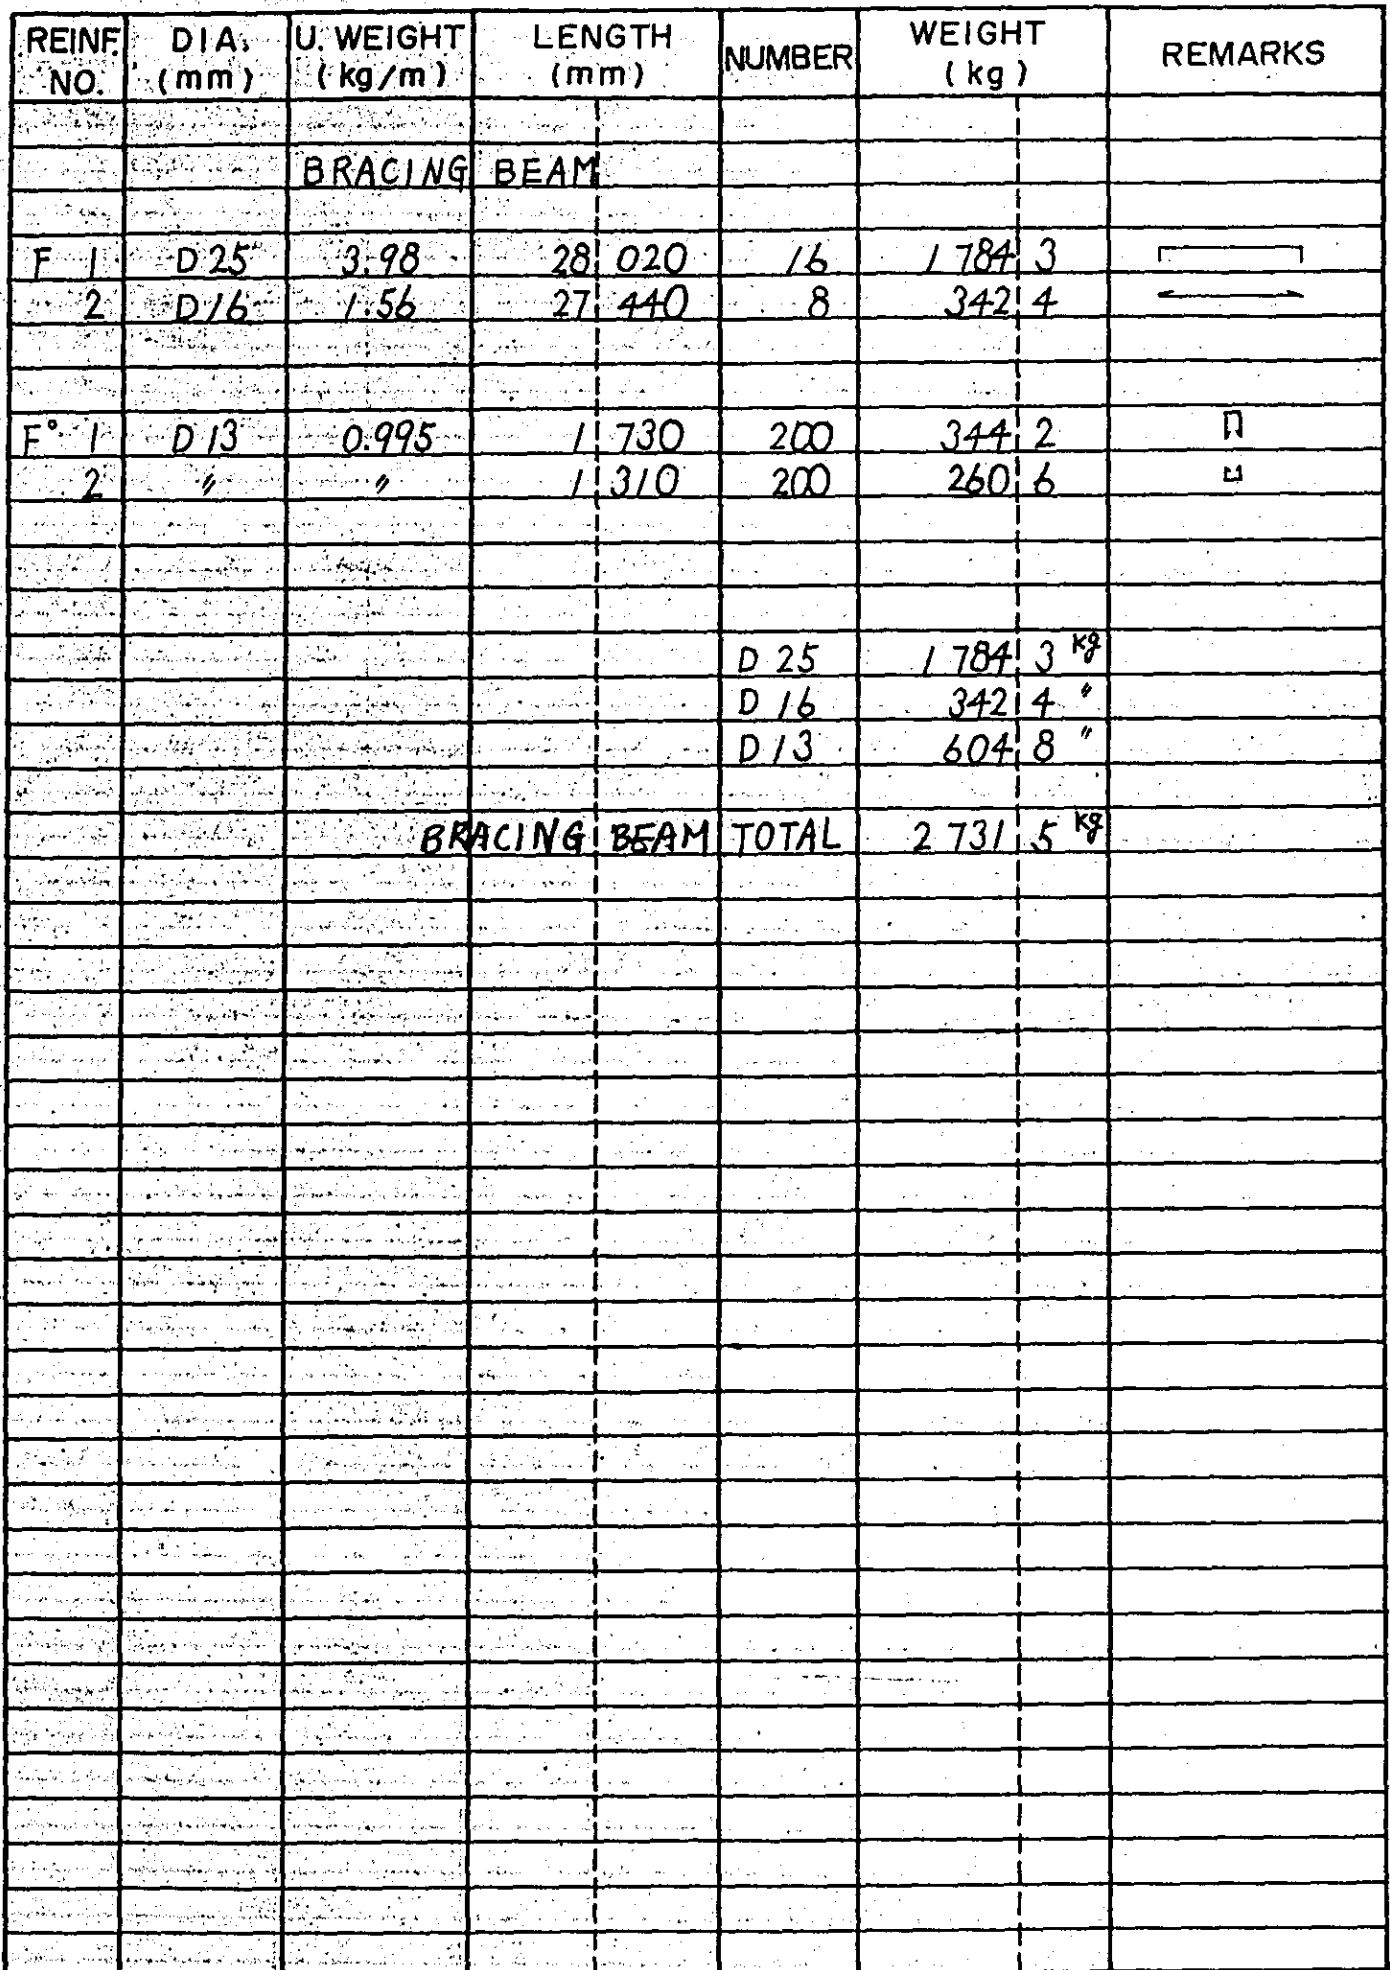 REINF. NO. DIA. (mm) U. WEIGHT (kg/m) LENGTH (mm) NUMBER WEIGHT (kg) REMARKS
BRACING BEAM
F 1 D25 3.98 28 020 16 1 784 3
2 D16 1.56 27 440 8 342 4
F° 1 D13 0.995 1 730 200 344 2
2 〃 〃 1 310 200 260 6
D 25 1 784 3 kg
D 16 342 4 〃
D 13 604 8 〃
BRACING BEAM TOTAL 2 731 5 kg